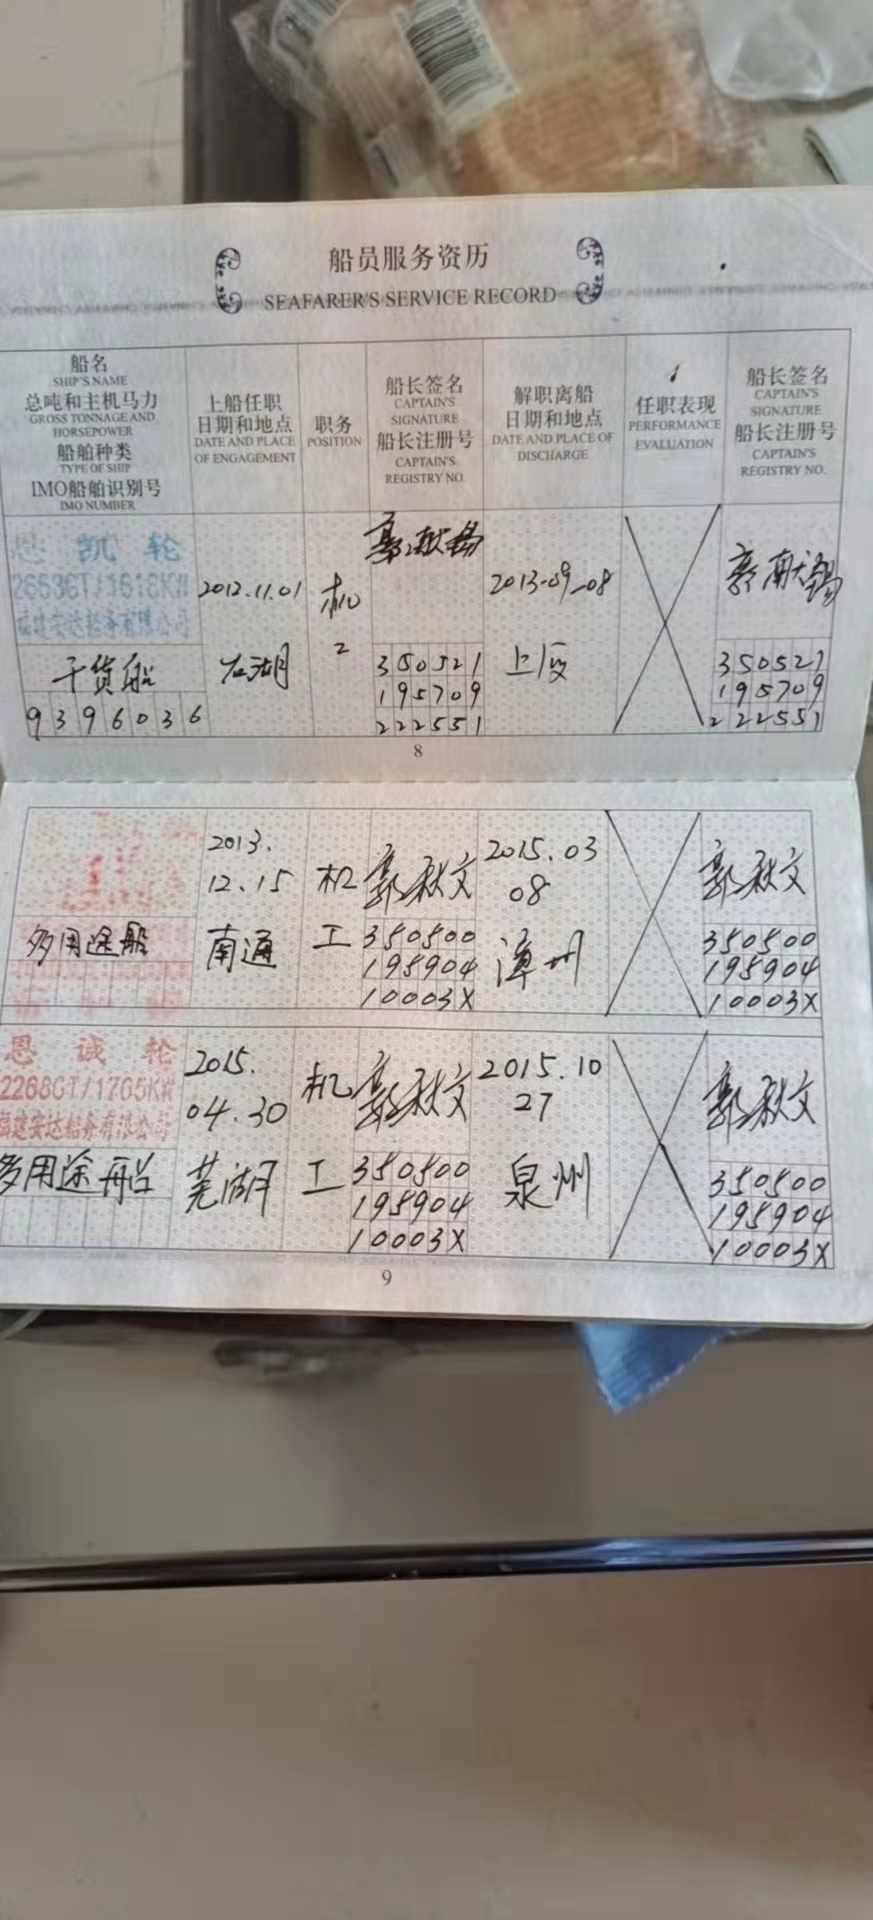 船员服务资历
SEAFARER'S SERVICE RECORD
船名
SHIP'S NAME
总吨和主机马力
GROSS TONNAGE AND
HORSEPOWER
船舶种类
TYPE OF SHIP
IMO船舶识别号
IMO NUMBER
上船任职
日期和地点
DATE AND PLACE
OF ENGAGEMENT
职务
POSITION
船长签名
CAPTAIN'S
SIGNATURE
船长注册号
CAPTAIN'S
REGISTRY NO.
解职离船
日期和地点
DATE AND PLACE OF
DISCHARGE
任职表现
PERFORMANCE
EVALUATION
船长签名
CAPTAIN'S
SIGNATURE
船长注册号
CAPTAIN'S
REGISTRY NO.
恩凯轮
福建安达船务有限公司
干货船
9396036
2012.11.01
石湖
机
350521
195709
222551
2013-09-08
上厦
350521
195709
222551
8
多用途船
2013.
12.15
南通
机
工
郭秋文
350500
195904
10003X
2015.03
08
漳州
郭秋文
350500
195904
10003X
恩诚轮
2268GT/1765KW
福建安达船务有限公司
多用途船
2015.
04.30
芜湖
机
工
郭秋文
350500
195904
10003X
2015.10
27
泉州
郭秋文
350500
195904
10003X
9